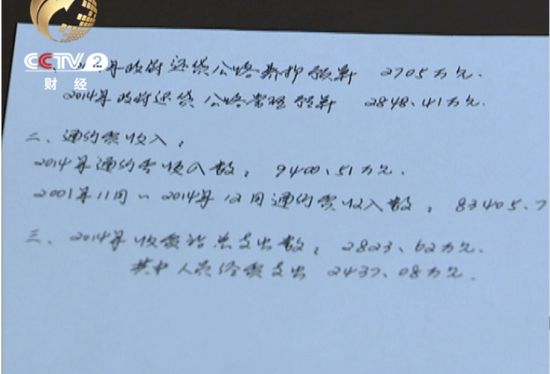 CCTV 2
财经
年政府还贷公路养护预算 2705万元.
2014年政府还贷公路管理预算 2848.41万元.
二、通行费收入:
2014年通行费收入数: 9400.51万元.
2001年11月~2014年12月通行费收入数: 83405.7
三、2014年收费站总支出数: 2823.62万元.
其中人员经费支出 2437.08万元.